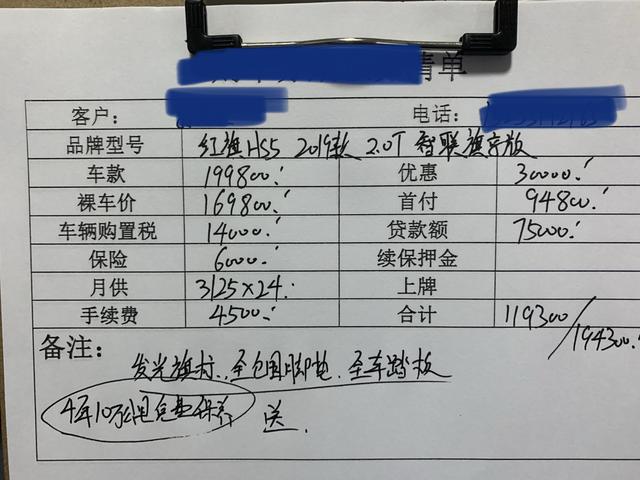 清单
客户： 电话：
品牌型号 红旗HS5 2019款 2.0T 智联旗享版
车款 199800. 优惠 30000.
裸车价 169800. 首付 94800.
车辆购置税 14000. 贷款额 75000.
保险 6000. 续保押金
月供 3125×24. 上牌
手续费 4500. 合计 119300/194300.
备注：
发光旗标、全包围脚垫、全车踏板
4年10万公里免费保养 送.